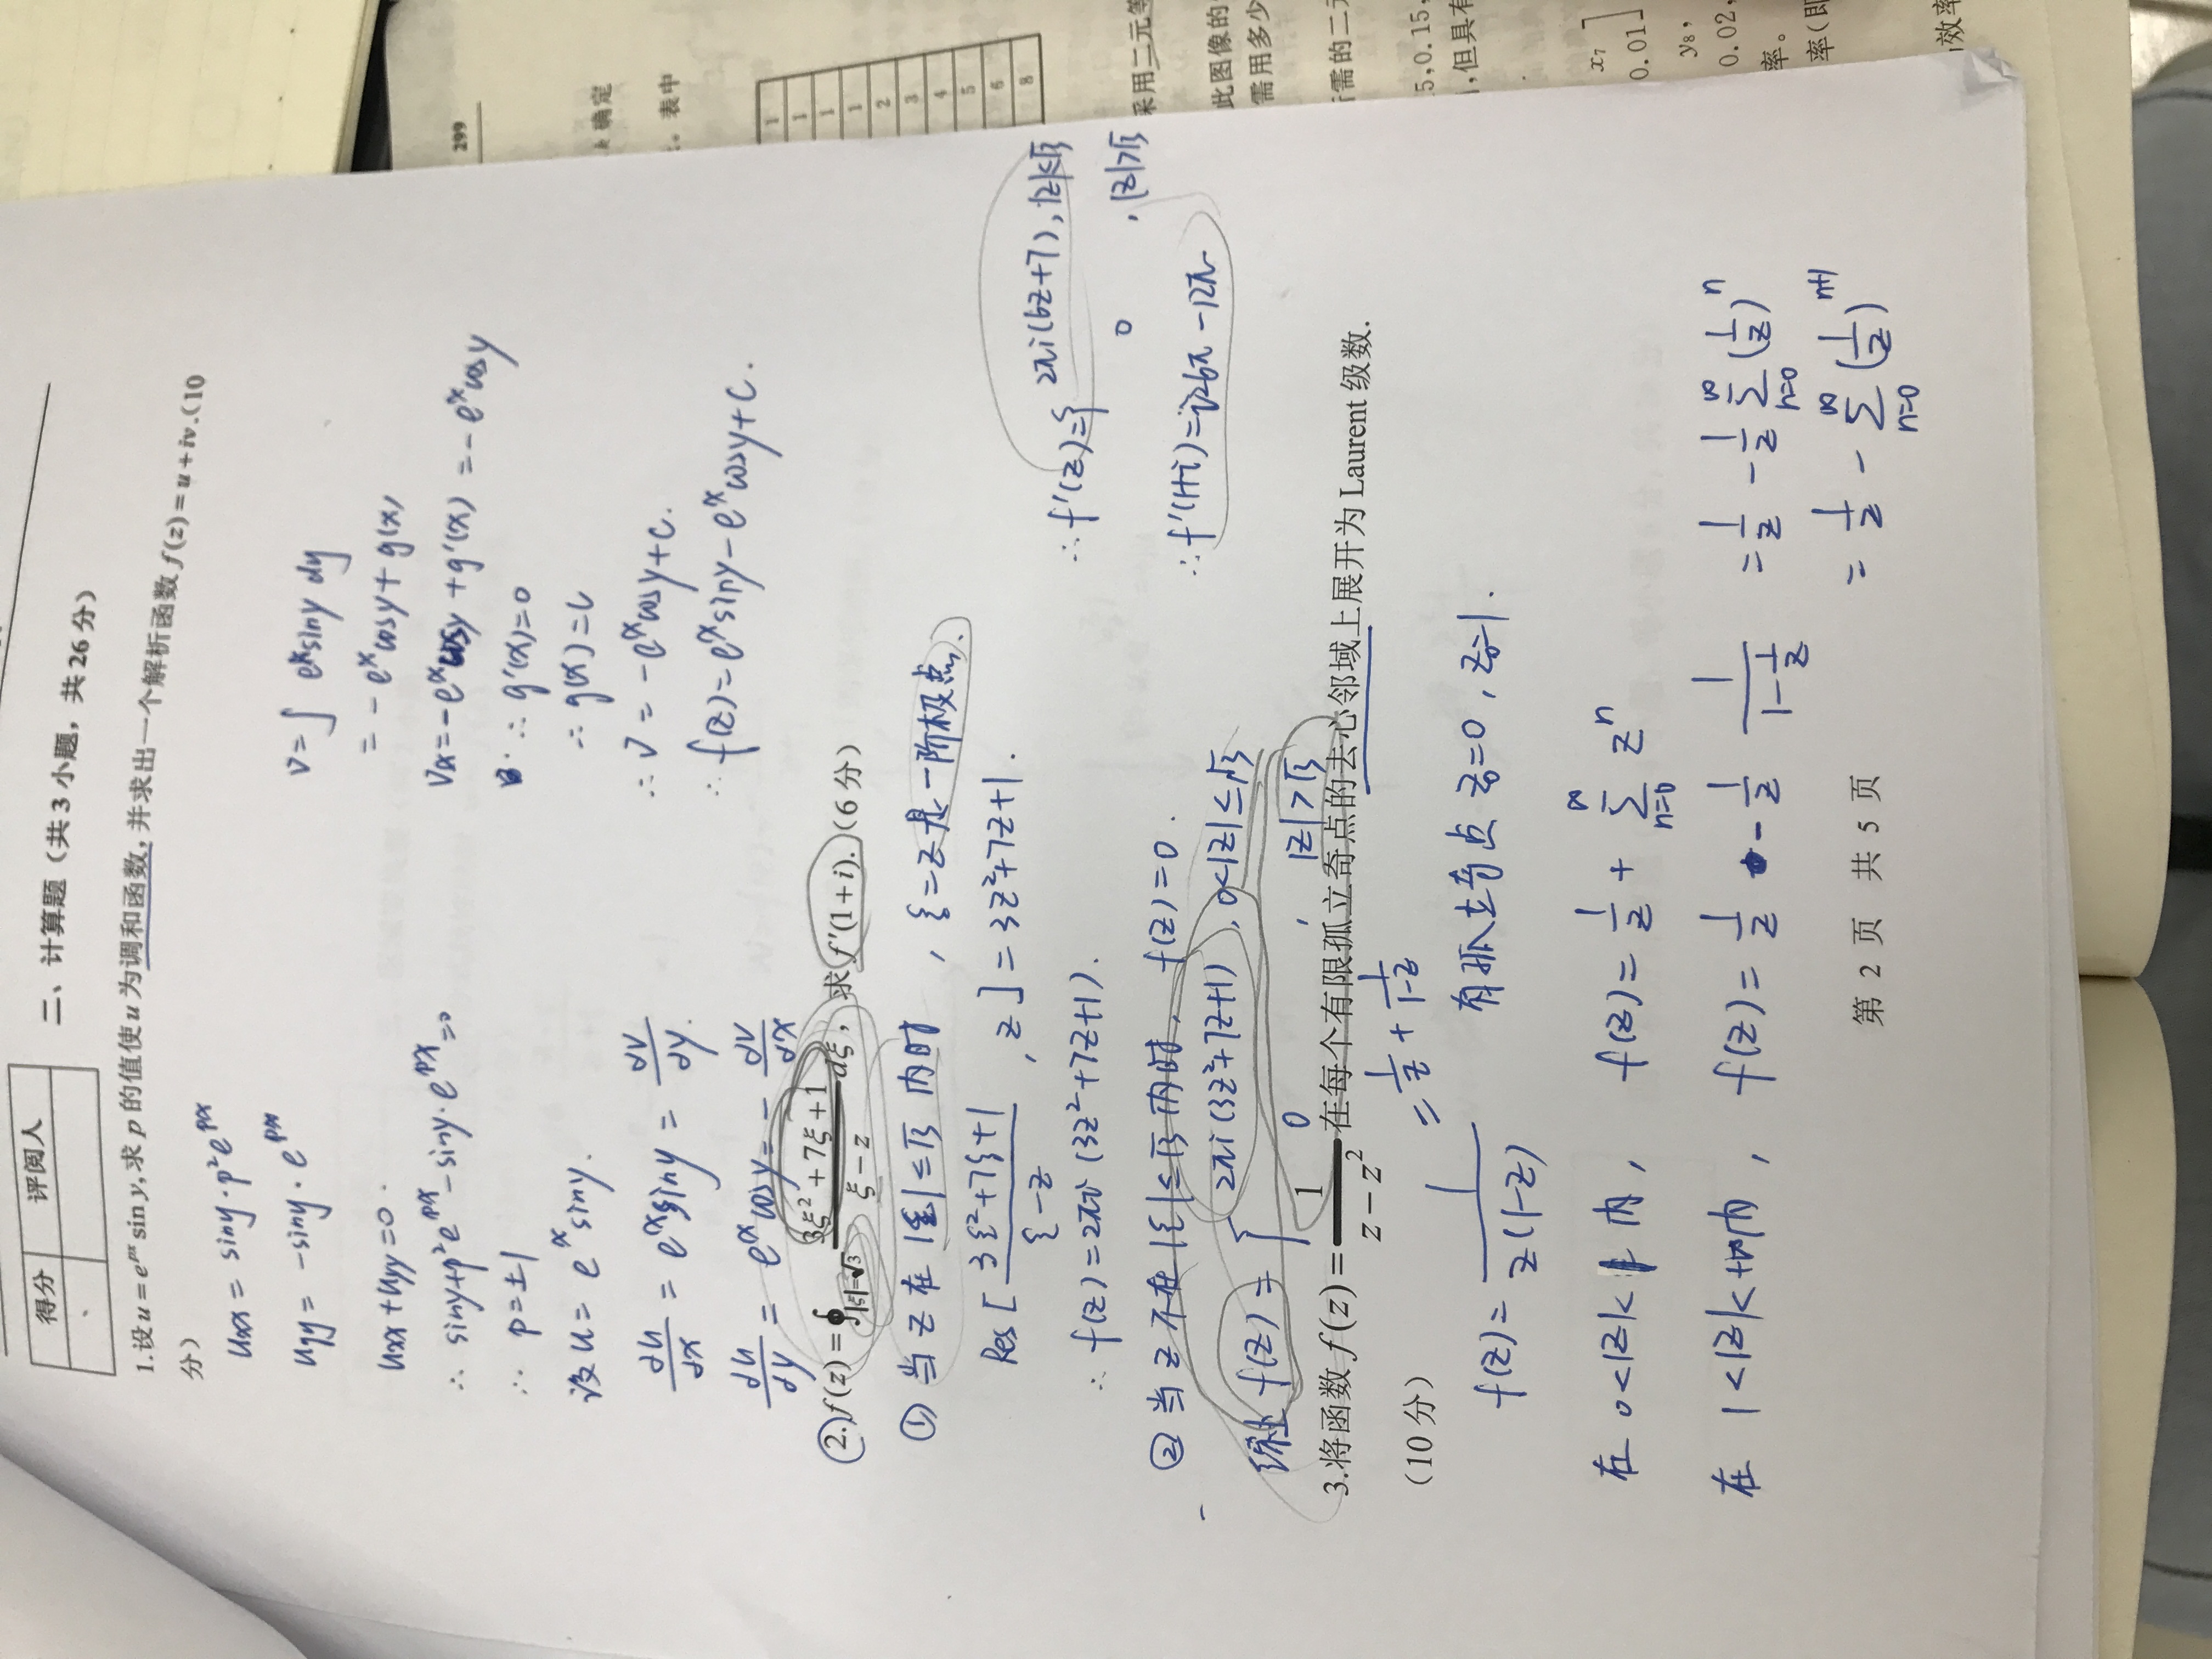 得分 评阅人
二、计算题（共 3 小题，共 26 分）
1.设 u = e^{px} sin y, 求 p 的值使 u 为调和函数, 并求出一个解析函数 f(z) = u + iv.（10
分）
uxx = siny · p²e^{px}
uyy = -siny · e^{px}
uxx + uyy = 0 ·
∴ siny+p²e^{px} - siny · e^{px} = 0
∴ p = ±1
设 u = e^x siny.
∂u/∂x = e^x siny = ∂v/∂y.
∂u/∂y = e^x cosy = - ∂v/∂x
v = ∫ e^x siny dy
= - e^x cosy + g(x)
Vx = - e^x cosy + g'(x) = - e^x cosy
∴ g'(x) = 0
∴ g(x) = C
∴ V = - e^x cosy + C.
∴ f(z) = e^x siny - e^x cosy + C.
2. f(z) = ∮_{|ξ|=√3} (3ξ² + 7ξ + 1)/(ξ - z) dξ, 求 f'(1+i).（6 分）
① 当 z 在 |ξ| ≤ √3 内时, ξ = z 是一阶极点.
Res [ (3ξ²+7ξ+1)/(ξ-z) , z ] = 3z²+7z+1.
∴ f(z) = 2πi (3z²+7z+1).
② 当 z 不在 |ξ| ≤ √3 内时, f(z) = 0.
综上 f(z) = { 2πi (3z²+7z+1), 0<|z|≤√3
0 , |z|>√3
∴ f'(z) = { 2πi(6z+7), |z|≤√3
0 , |z|>√3
∴ f'(1+i) = i26π - 12π
3.将函数 f(z) = 1/(z - z²) 在每个有限孤立奇点的去心邻域上展开为 Laurent 级数.
= 1/z + 1/(1-z)
（10 分）
f(z) = 1/(z(1-z)) 有孤立奇点 z₀=0, z₀=1.
在 0<|z|<1 内, f(z) = 1/z + ∑_{n=0}^{∞} z^n
在 1<|z|<+∞内, f(z) = 1/z - 1/z 1/(1-1/z) = 1/z - 1/z ∑_{n=0}^{∞} (1/z)^n
= 1/z - ∑_{n=0}^{∞} (1/z)^{n+1}
第 2 页 共 5 页
299
确定
。表中
1
1
1
1
2
3
4
5
6
8
采用二元等
此图像的
需用多少
所需的二元
5,0.15,
,但具有
x₇
0.01]
y₈,
0.02,
率。
率(即
效率